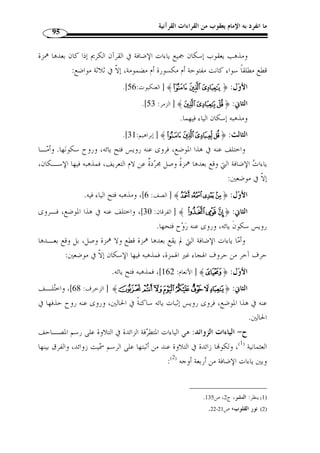 ما انفرد به الإمام يعقوب من القراءات القرآنية
95
ومذهب يعقوب إسكان جميع ياءات الإضافة في القرآن الكريم إذا كان بعدها همزة
قطع مطلقاً سواء كانت مفتوحة أم مكسورة أم مضمومة، إلاّ في ثلاثة مواضع:
الأوّل: ﴿ يَٰعِبَادِيَ ٱلَّذِينَ ءَامَنُوٓاْ ﴾ [ العنكبوت: 56].
الثاني: ﴿ يَٰعِبَادِيَ ٱلَّذِينَ ﴾ [ الزمر: 53].
ومذهبه إسكان الياء فيهما.
الثالث: ﴿ قُل لِّعِبَادِيَ ٱلَّذِينَ ءَامَنُواْ ﴾ [ إبراهيم: 31].
واختلف عنه في هذا الموضع، فروى عنه رويس فتح يائه، وروح سكونها. وأمّا
ياءاتُ الإضافة التي وقع بعدها همزةُ وصلٍ مجرّدةٌ عن لام التعريف، فمذهبه فيها الإسكان،
إلاّ في موضعين:
الأوّل: ﴿ مِنۢ بَعْدِي ٱسْمُهُۥٓ أَحْمَدُ ﴾ [ الصف: 6]، ومذهبه فتح الياء فيه.
الثاني: ﴿ إِنَّ قَوْمِي ٱتَّخَذُواْ ﴾ [ الفرقان: 30]، واختلف عنه في هذا الموضع، فروى
رويس سكون يائه، وروى عنه رَوْح فتحها.
وأمّا ياءات الإضافة التي لم يقع بعدها همزة قطع ولا همزة وصل، بل وقع بعدها
حرف آخر من حروف الهجاء غير الهمزة، فمذهبه فيها الإسكان إلاّ في موضعين:
الأوّل: ﴿ وَمَحْيَايَ ﴾ [ الأنعام: 162]، فمذهبه فتح يائه.
الثاني: ﴿ يَٰعِبَادِ لَا خَوْفٌ عَلَيْكُمُ ٱلْيَوْمَ وَلَآ أَنتُمْ تَحْزَنُونَ ﴾ [ الزخرف: 68]، واختُلف
عنه في هذا الموضع، فروى رويس إثبات يائه ساكنةً في الحالين، وروى عنه روح حذفها في
الحالين.
ح– الياءات الزوائد: هي الياءات المتطرّفة الزائدة في التلاوة على رسم المصاحف
العثمانية (1)، ولكونها زائدة في التلاوة عند من أثبتها على الرسم سمّيت زوائد، والفرق بينها
وبين ياءات الإضافة من أربعة أوجه (2):
(1) ينظر: النشر، ج2، ص135.
(2) نور القلوب، ص21-22.